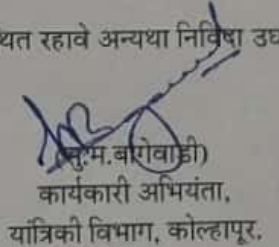 रहावे अन्यथा निविदा
(सु.म.बागेवाडी)
कार्यकारी अभियंता,
यांत्रिकी विभाग, कोल्हापूर.